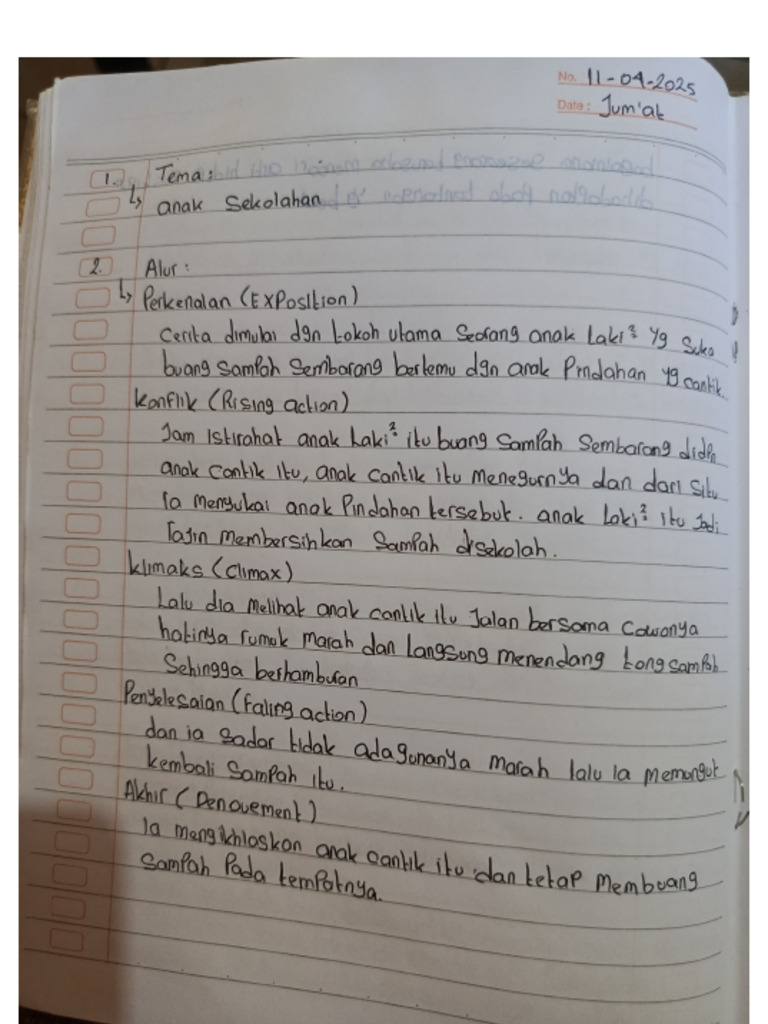 No. 11-04-2025
Date: Jum'at
1. Tema:
↳ anak sekolahan
2. Alur:
↳ Perkenalan (Exposition)
Cerita dimulai dgn tokoh utama seorang anak laki² yg suka
buang sampah sembarang bertemu dgn anak Pindahan yg cantik.
Konflik (Rising action)
Jam istirahat anak laki² itu buang sampah sembarang didpn
anak cantik itu, anak cantik itu menegurnya dan dari situ
Ia menyukai anak Pindahan tersebut. anak laki² itu jadi
rajin membersihkan sampah disekolah.
Klimaks (Climax)
Lalu dia melihat anak cantik itu jalan bersama cowonya
hatinya rumuk marah dan langsung menendang tong sampah
sehingga berhamburan
Penyelesaian (Faling action)
dan ia sadar tidak ada gunanya marah lalu ia memungut
kembali sampah itu.
Akhir (Denouement)
Ia mengikhlaskan anak cantik itu dan tetap membuang
sampah Pada tempatnya.